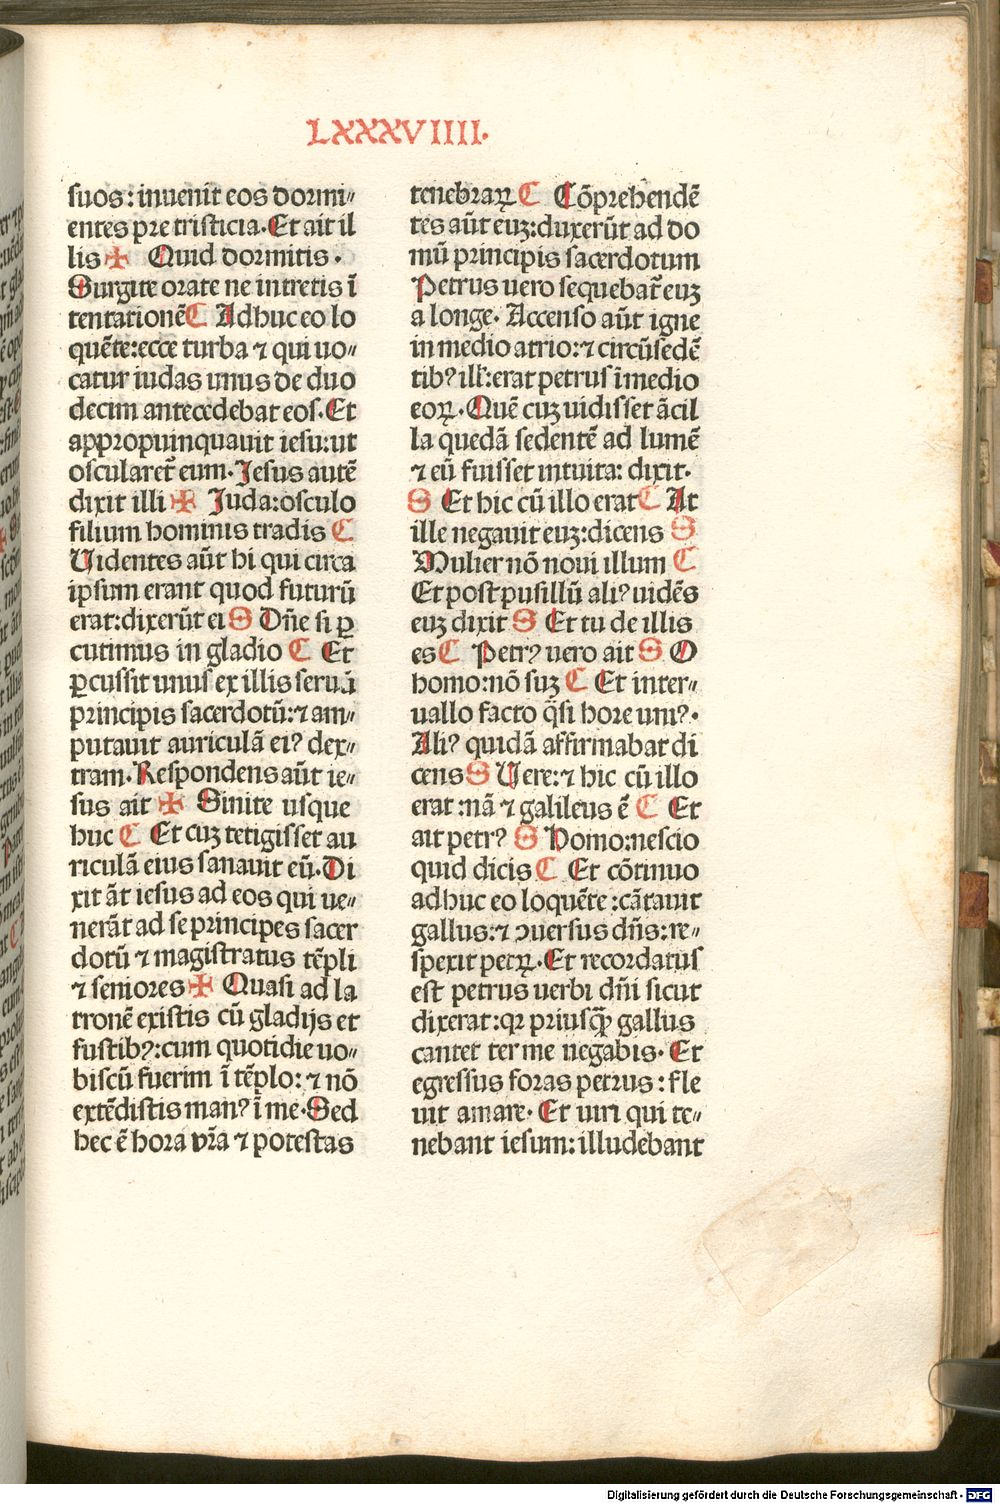 LXXXVIIII.
suos: inuenit eos dormi⸗
entes pre tristicia. Et ait il
lis ✠ Quid dormitis.
Surgite orate ne intretis ī
tentationē C Adhuc eo lo
quēte: ecce turba ⁊ qui uo⸗
catur iudas unus de duo
decim antecedebat eos. Et
appropuinquauit iesu: ut
oscularet̄ eum. Jesus autē
dixit illi ✠ Juda: osculo
filium hominis tradis C
Uidentes aūt hi qui circa
ipsum erant quod futurū
erat: dixerūt ei S Dn̄e si ꝑ
cutimus in gladio C Et
ꝑcussit unus ex illis seruū
principis sacerdotū: ⁊ am⸗
putauit auriculā eiꝰ dex⸗
tram. Respondens aūt ie⸗
sus ait ✠ Sinite usque
huc C Et cuȝ tetigisset au
riculā eius sanauit eū. Di
xit āt iesus ad eos qui ue⸗
nerāt ad se principes sacer
dotū ⁊ magistratus tēpli
⁊ seniores ✠ Quasi ad la
tronē existis cū gladijs et
fustibꝰ: cum quotidie uo⸗
biscū fuerim ī tēplo: ⁊ nō
extēdistis manꝰ ī me. Sed
hec ē hora vr̄a ⁊ potestas
tenebraꝝ C Cōprehendē
tes aūt euȝ: duxerūt ad do
mū principis sacerdotum
Petrus uero sequebat̄ euȝ
a longe. Accenso aūt igne
in medio atrio: ⁊ circūsedē
tibꝰ ill̄: erat petrus ī medio
eoꝝ. Quē cuȝ uidisset ācil
la quedā sedentē ad lumē
⁊ eū fuisset intuita: dixit.
S Et hic cū illo erat C At
ille negauit euȝ: dicens S
Mulier nō noui illum C
Et post pusillū aliꝰ uidēs
euȝ dixit S Et tu de illis
es C Petrꝰ uero ait S O
homo: nō suȝ C Et inter⸗
uallo facto q̄si hore uniꝰ.
Aliꝰ quidā affirmabat di
cens S Uere: ⁊ hic cū illo
erat: nā ⁊ galileus ē C Et
ait petrꝰ S Homo: nescio
quid dicis C Et cōtinuo
adhuc eo loquēte: cātauit
gallus: ⁊ ꝯuersus dn̄s: re⸗
spexit petꝝ. Et recordatus
est petrus uerbi dn̄i sicut
dixerat: qꝛ priusꝙ̄ gallus
cantet ter me negabis. Et
egressus foras petrus: fle
uit amare. Et uiri qui te⸗
nebant iesum: illudebant
Digitalisierung gefördert durch die Deutsche Forschungsgemeinschaft - DFG